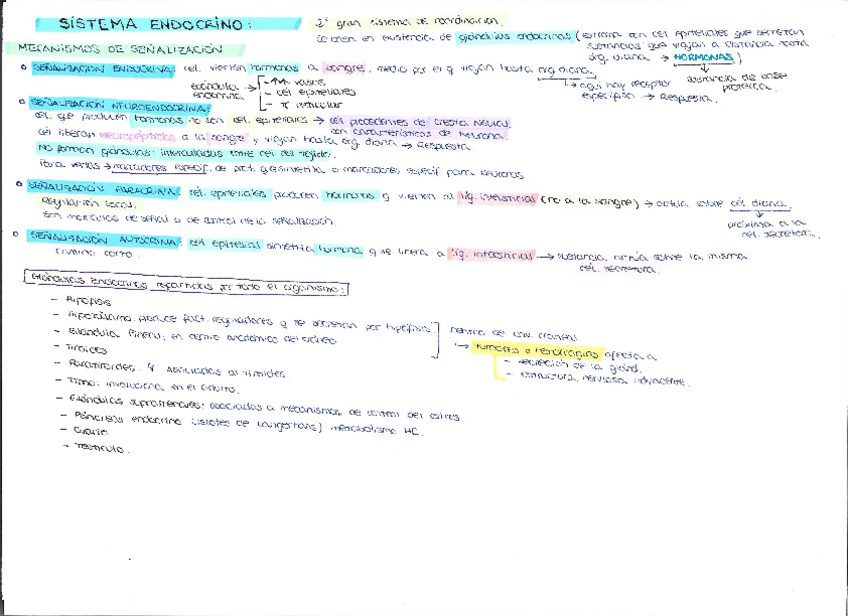 SISTEMA ENDOCRINO:
2º gran sistema de coordinación.
se basa en existencia de glándulas endocrinas (estruct. con cél. epiteliales que secretan
sustancias que viajan a distancia hasta
órg. diana → HORMONAS)
sustancia de base
proteica.
MECANISMOS DE SEÑALIZACIÓN
SEÑALIZACIÓN ENDOCRINA: cél. vierten hormonas a sangre, medio por el q viajan hasta órg. diana.
glándula
endocrina
- ↑↑ vasos
- cél epiteliales
- T reticular
aquí hay receptor
específico → Respuesta.
SEÑALIZACIÓN NEUROENDOCRINA:
cél. que producen hormonas no son cél. epiteliales → cél procedentes de cresta neural
con características de neurona.
cél liberan neuropéptidos a la sangre y viajan hasta órg. diana → Respuesta
No forman glándulas: intercaladas entre cél. del tejido.
Para verlas → marcadores específ. de prot. q sintetiza o marcadores específ para neuronas
SEÑALIZACIÓN PARACRINA: cél. epiteliales producen hormonas q vierten al líq. intersticial (no a la sangre) → actúa sobre cél diana.
Regulación local.
próxima a la
cél. secretora.
son mecanismos de señal o de control de la señalización.
SEÑALIZACIÓN AUTOCRINA: cél epitelial sintetiza hormona q se libera a líq. intersticial → sustancia actúa sobre la misma
cél. secretora.
camino corto.
Glándulas Endocrinas repartidas por todo el organismo:
- Hipófisis
- Hipotálamo: produce fact. reguladores q se secretan por hipófisis
- Glándula Pineal: en centro anatómico del cerebro
dentro de cav. craneal
→ tumores o hemorragias afecta a
- secreción de la gland.
- estructura nerviosa adyacente.
- Tiroides
- Paratiroides: 4 asociadas al tiroides
- Timo: involuciona en el adulto.
- Glándulas suprarrenales: asociadas a mecanismos de control del estrés.
- Páncreas endocrino (islotes de Langerhans) metabolismo HC.
- Ovario
- Testículo.